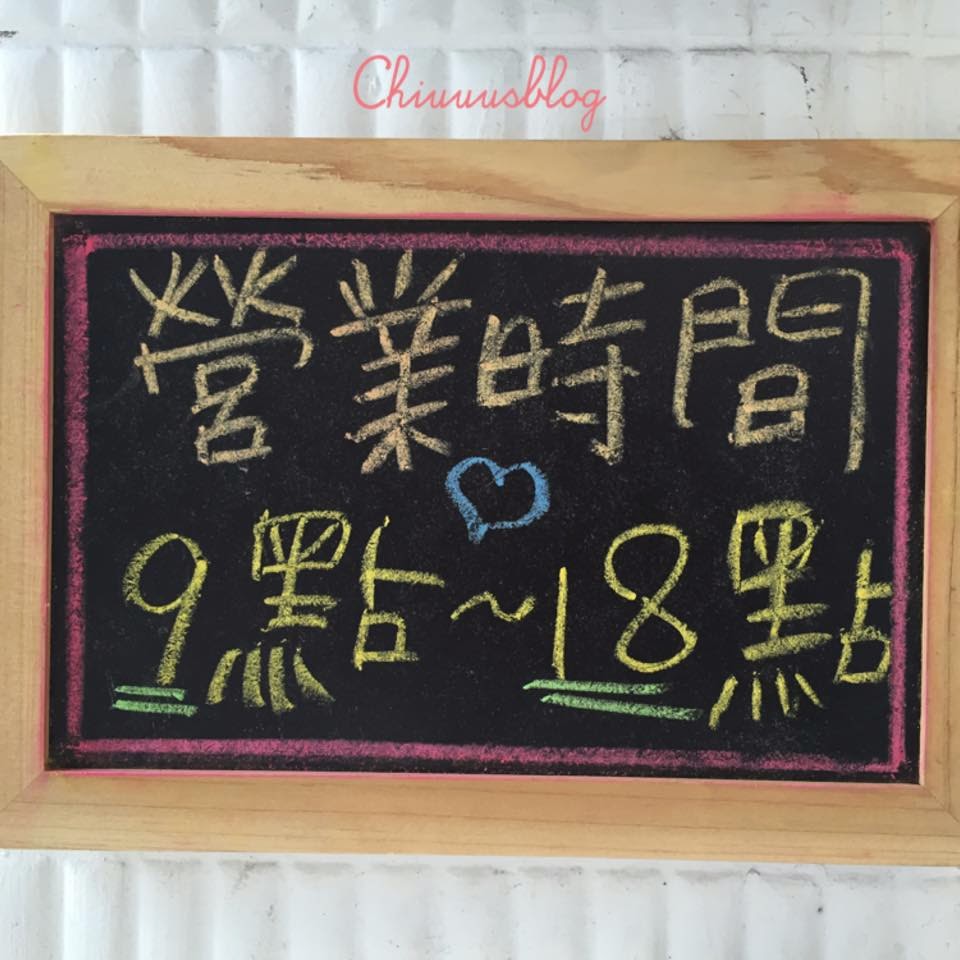 Chiuuusblog
營業時間
9點~18點